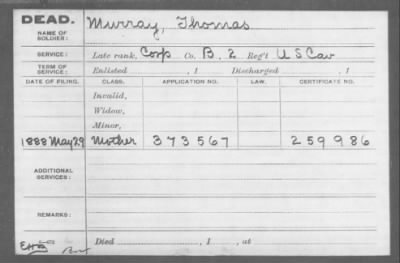 DEAD.
NAME OF SOLDIER: Murray, Thomas
SERVICE: Late rank, Corp Co. B, 2 Reg't U S Cav
TERM OF SERVICE: Enlisted , 1 Discharged , 1
DATE OF FILING. CLASS. APPLICATION NO. LAW. CERTIFICATE NO.
Invalid,
Widow,
Minor,
1888 May 29 Mother 373567 259986
ADDITIONAL SERVICES:
REMARKS:
Died , 1 , at